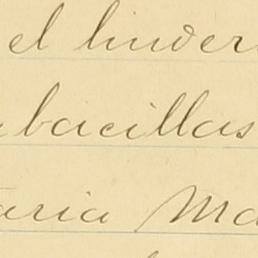 el hiver
bacillas
aria Ma